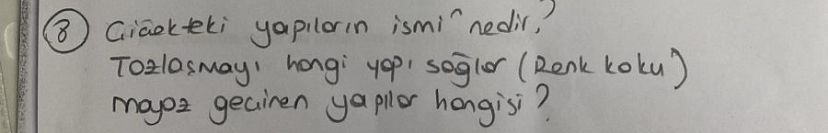 8) Çiçekteki yapıların ismi nedir?
Tozlaşmayı hangi yapı sağlar (Renk koku)
mayoz geçiren yapılar hangisi?